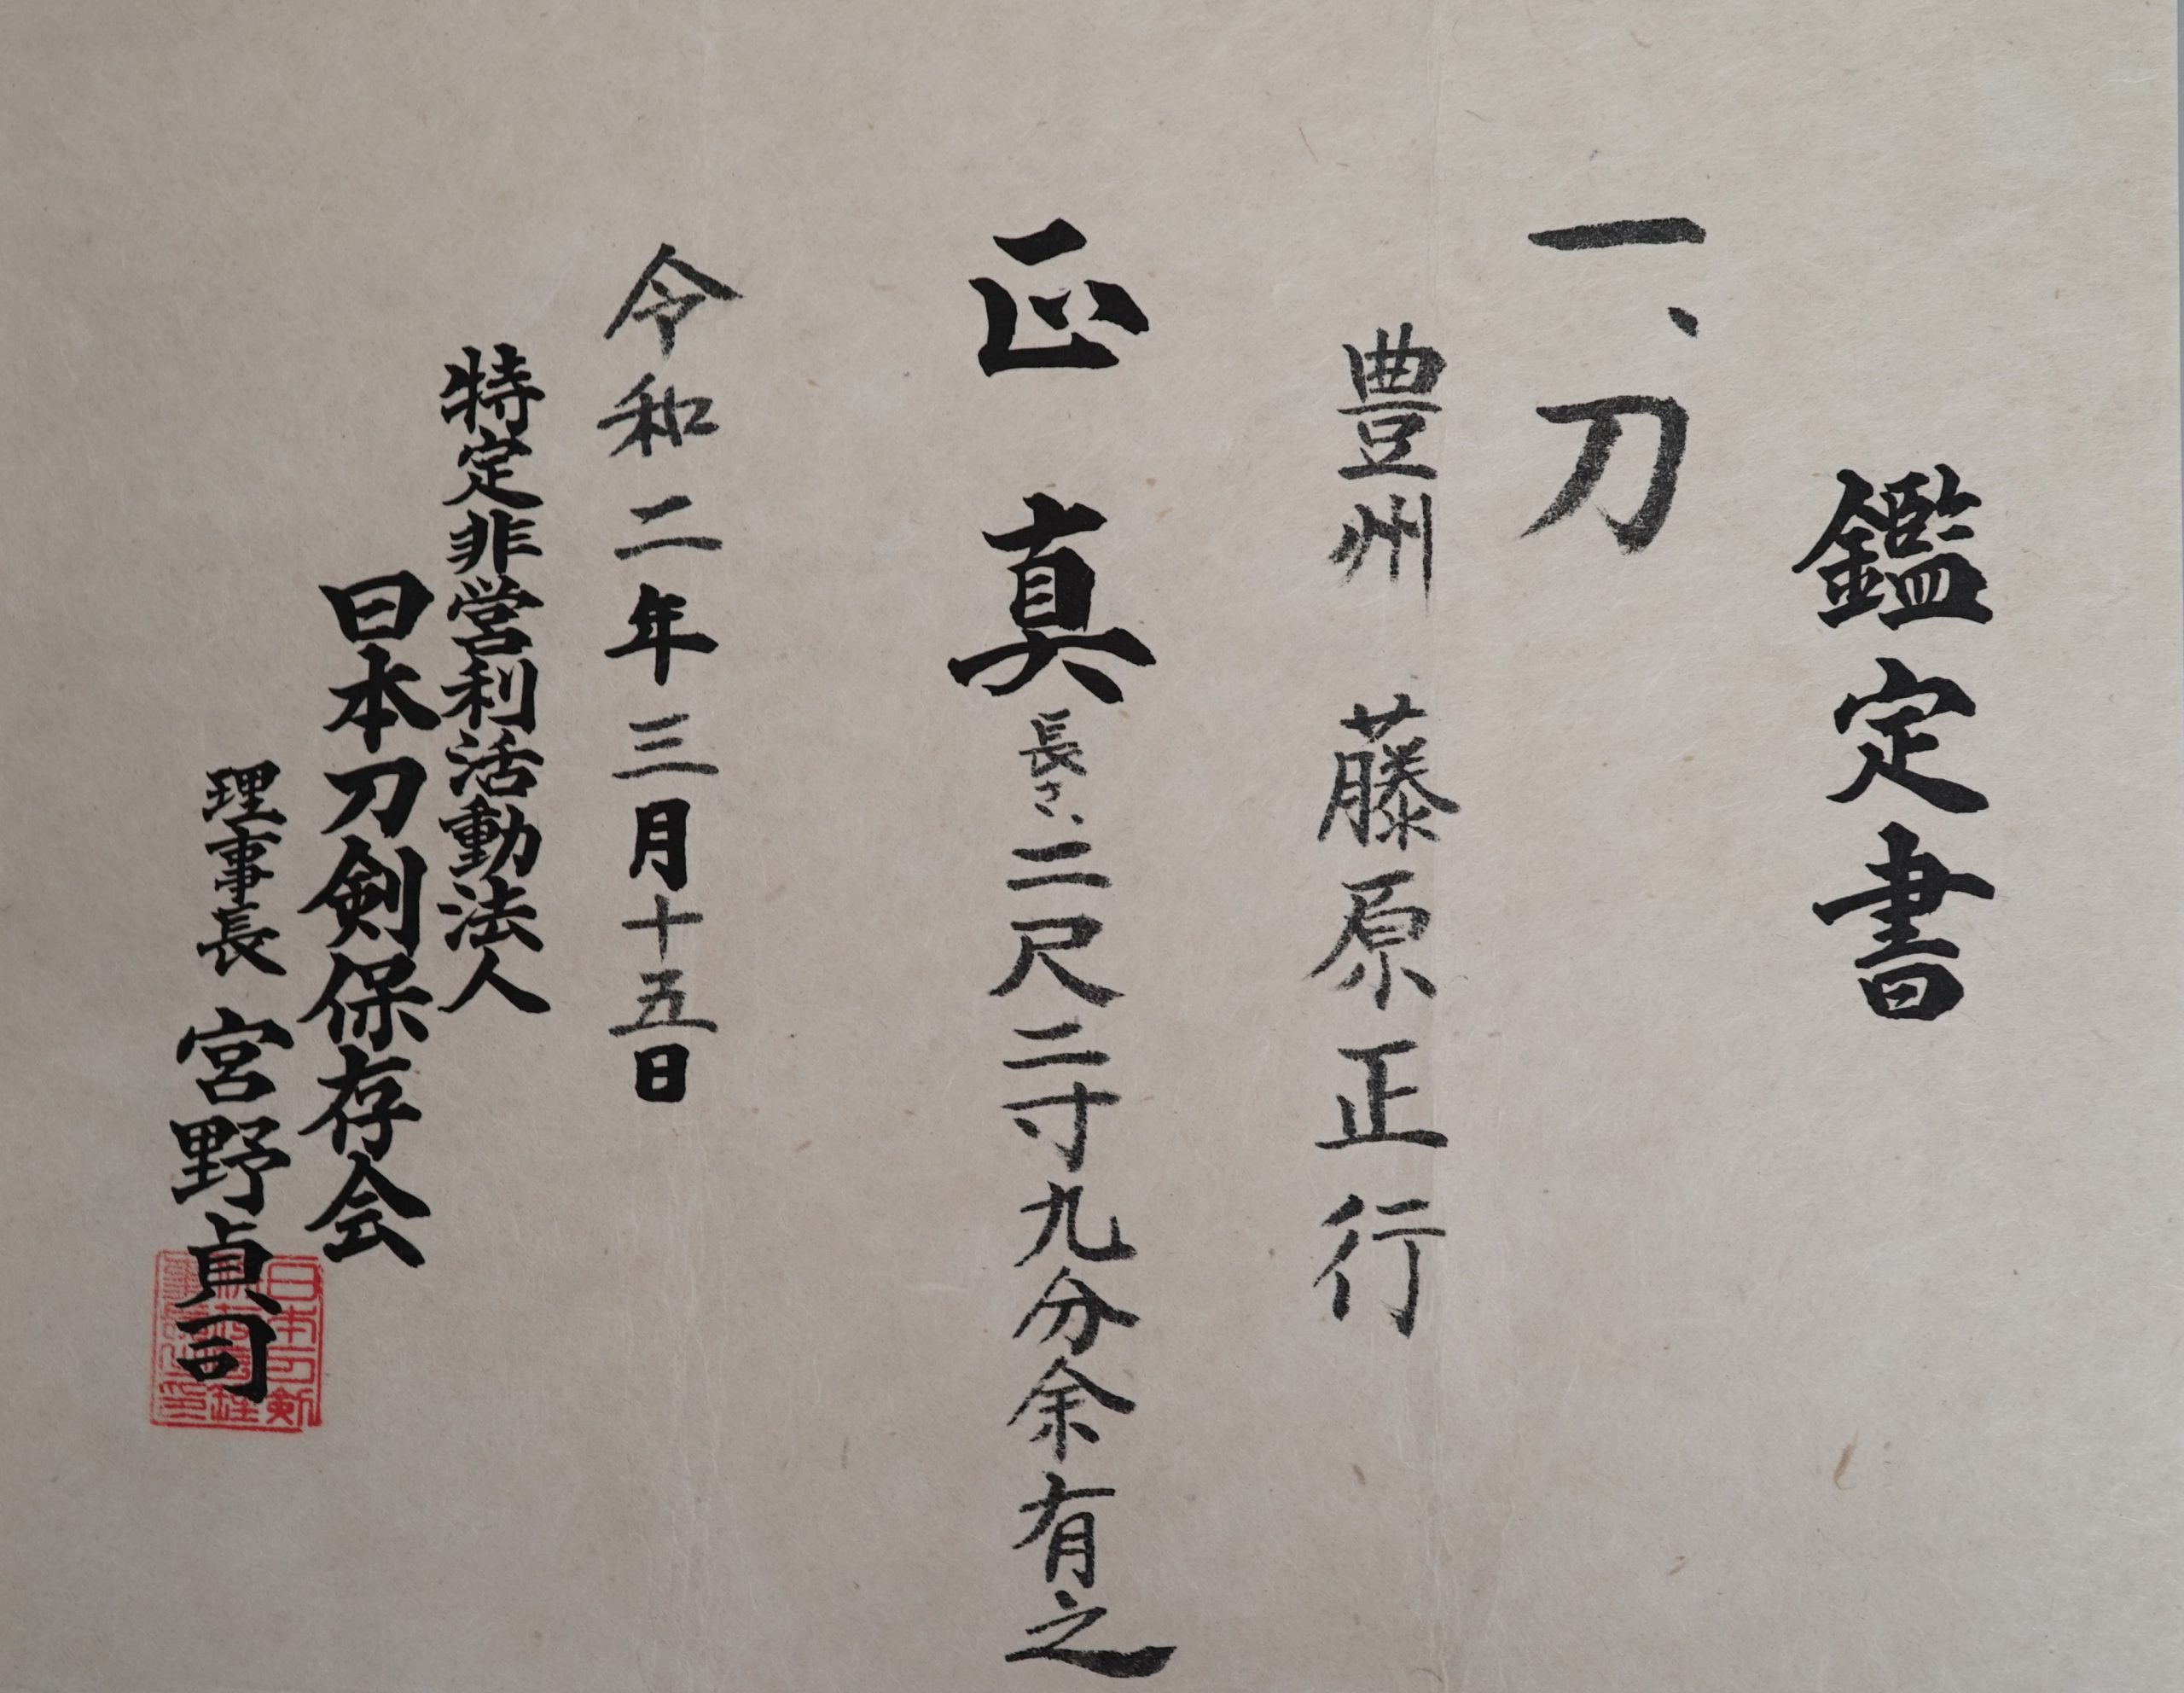 鑑定書
一、刀
豊州 藤原正行
正真 長さ、二尺二寸九分余有之
令和二年三月十五日
特定非営利活動法人
日本刀剣保存会
理事長 宮野貞司